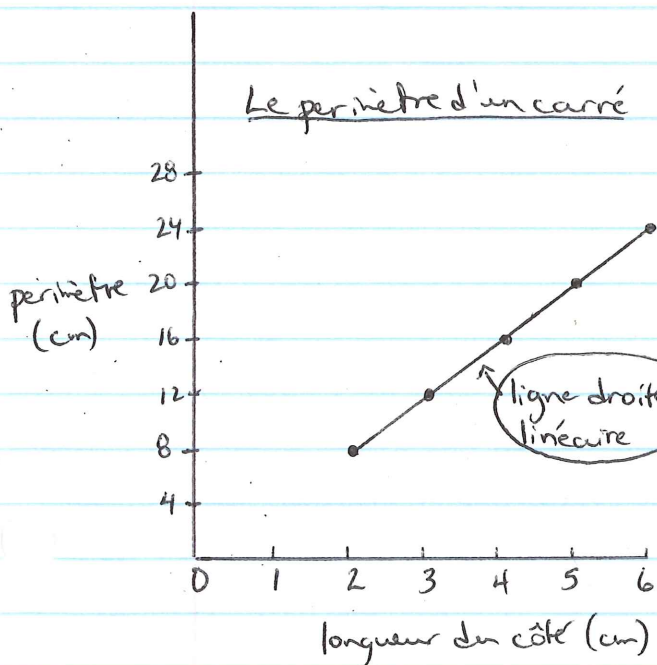 Le périmètre d'un carré
28
24
périmètre 20
(cm) 16
12
ligne droite
8 linéaire
4
0 1 2 3 4 5 6
longueur du côté (cm)